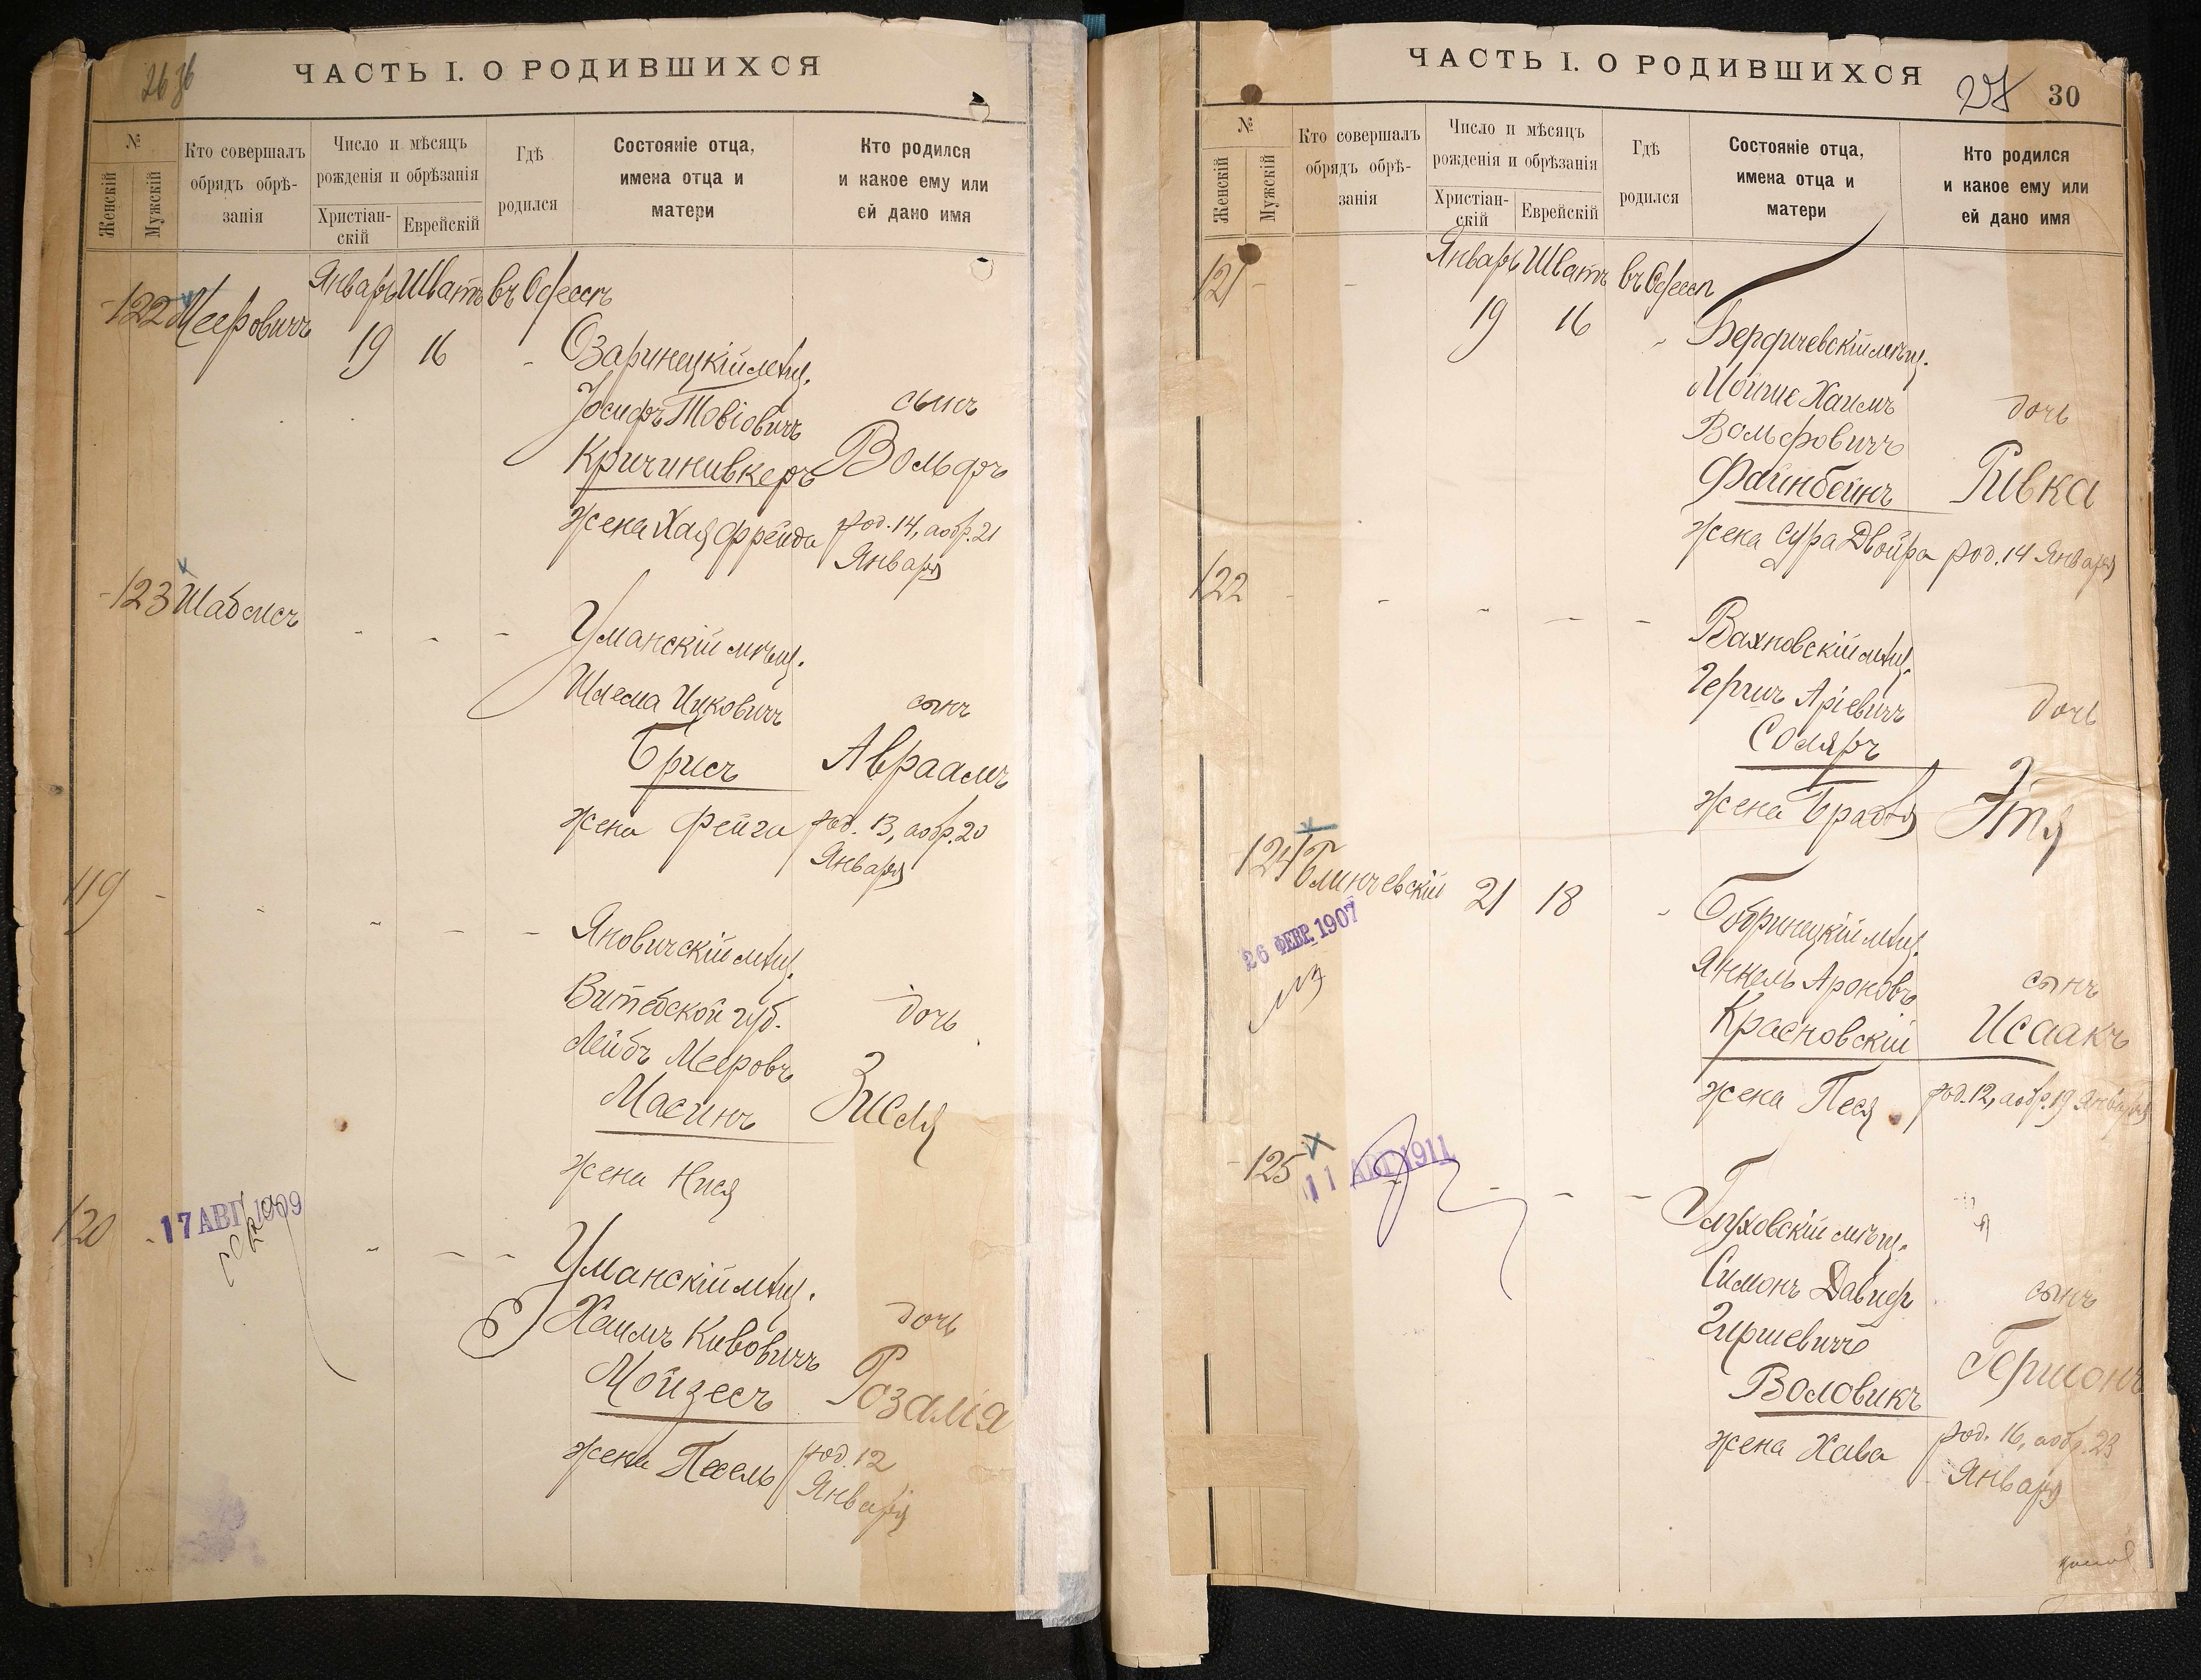 ЧАСТЬ I. О РОДИВШИХСЯ
№
Женскій
Мужскій
Кто совершалъ обрядъ обрѣ-занія
Число и мѣсяцъ рожденія и обрѣзанія
Христіан-скій
Еврейскій
Гдѣ родился
Состояніе отца, имена отца и матери
Кто родился и какое ему или ей дано имя
122 Мееровичъ
Январь Шватъ въ Одессѣ
19 16 -
Озаринецкій мѣщ.
Іосифъ Товіовичъ
Кричинивкеръ
жена Хая Фрейда
сынъ
Вольфъ
род. 14, а обр. 21
Января
123 Шабсисъ
- - -
Уманскій мѣщ.
Шлема Ицковичъ
Брисъ
жена Фейга
сынъ
Авраамъ
род. 13, а обр. 20
Января
119 - - - - -
Яновичскій мѣщ.
Витебской губ.
Лейбъ Мееровъ
Масинъ
жена Нися
дочь
Зисля
120 -
17 АВГ. 1909
- - -
Уманскій мѣщ.
Хаимъ Кивовичъ
Мойзесъ
жена Песель
дочь
Розалія
род. 12
Января
ЧАСТЬ I. О РОДИВШИХСЯ
30
№
Женскій
Мужскій
Кто совершалъ обрядъ обрѣ-занія
Число и мѣсяцъ рожденія и обрѣзанія
Христіан-скій
Еврейскій
Гдѣ родился
Состояніе отца, имена отца и матери
Кто родился и какое ему или ей дано имя
121 - -
Январь Шватъ въ Одессѣ
19 16 -
Бердичевскій мѣщ.
Мойше Хаимъ
Вольфовичъ
Файнбейнъ
жена Сура Двойра
дочь
Ривка
род. 14 Января
122 - - - - -
Вахновскій мѣщ.
Гершъ Аріевичъ
Соляръ
жена
дочь
Этя
124 Блинчевскій
21 18 -
26 ФЕВР. 1907
Бобринецкій мѣщ.
Янкель Ароновъ
Красновскій
жена Песя
сынъ
Исаакъ
род. 12, а обр. 19 Января
125
11 АВГ 1911
- - -
Глуховскій мѣщ.
Симонъ Давидъ
Гиршевичъ
Воловикъ
жена Хава
сынъ
Гершонъ
род. 16, а обр. 23
Января